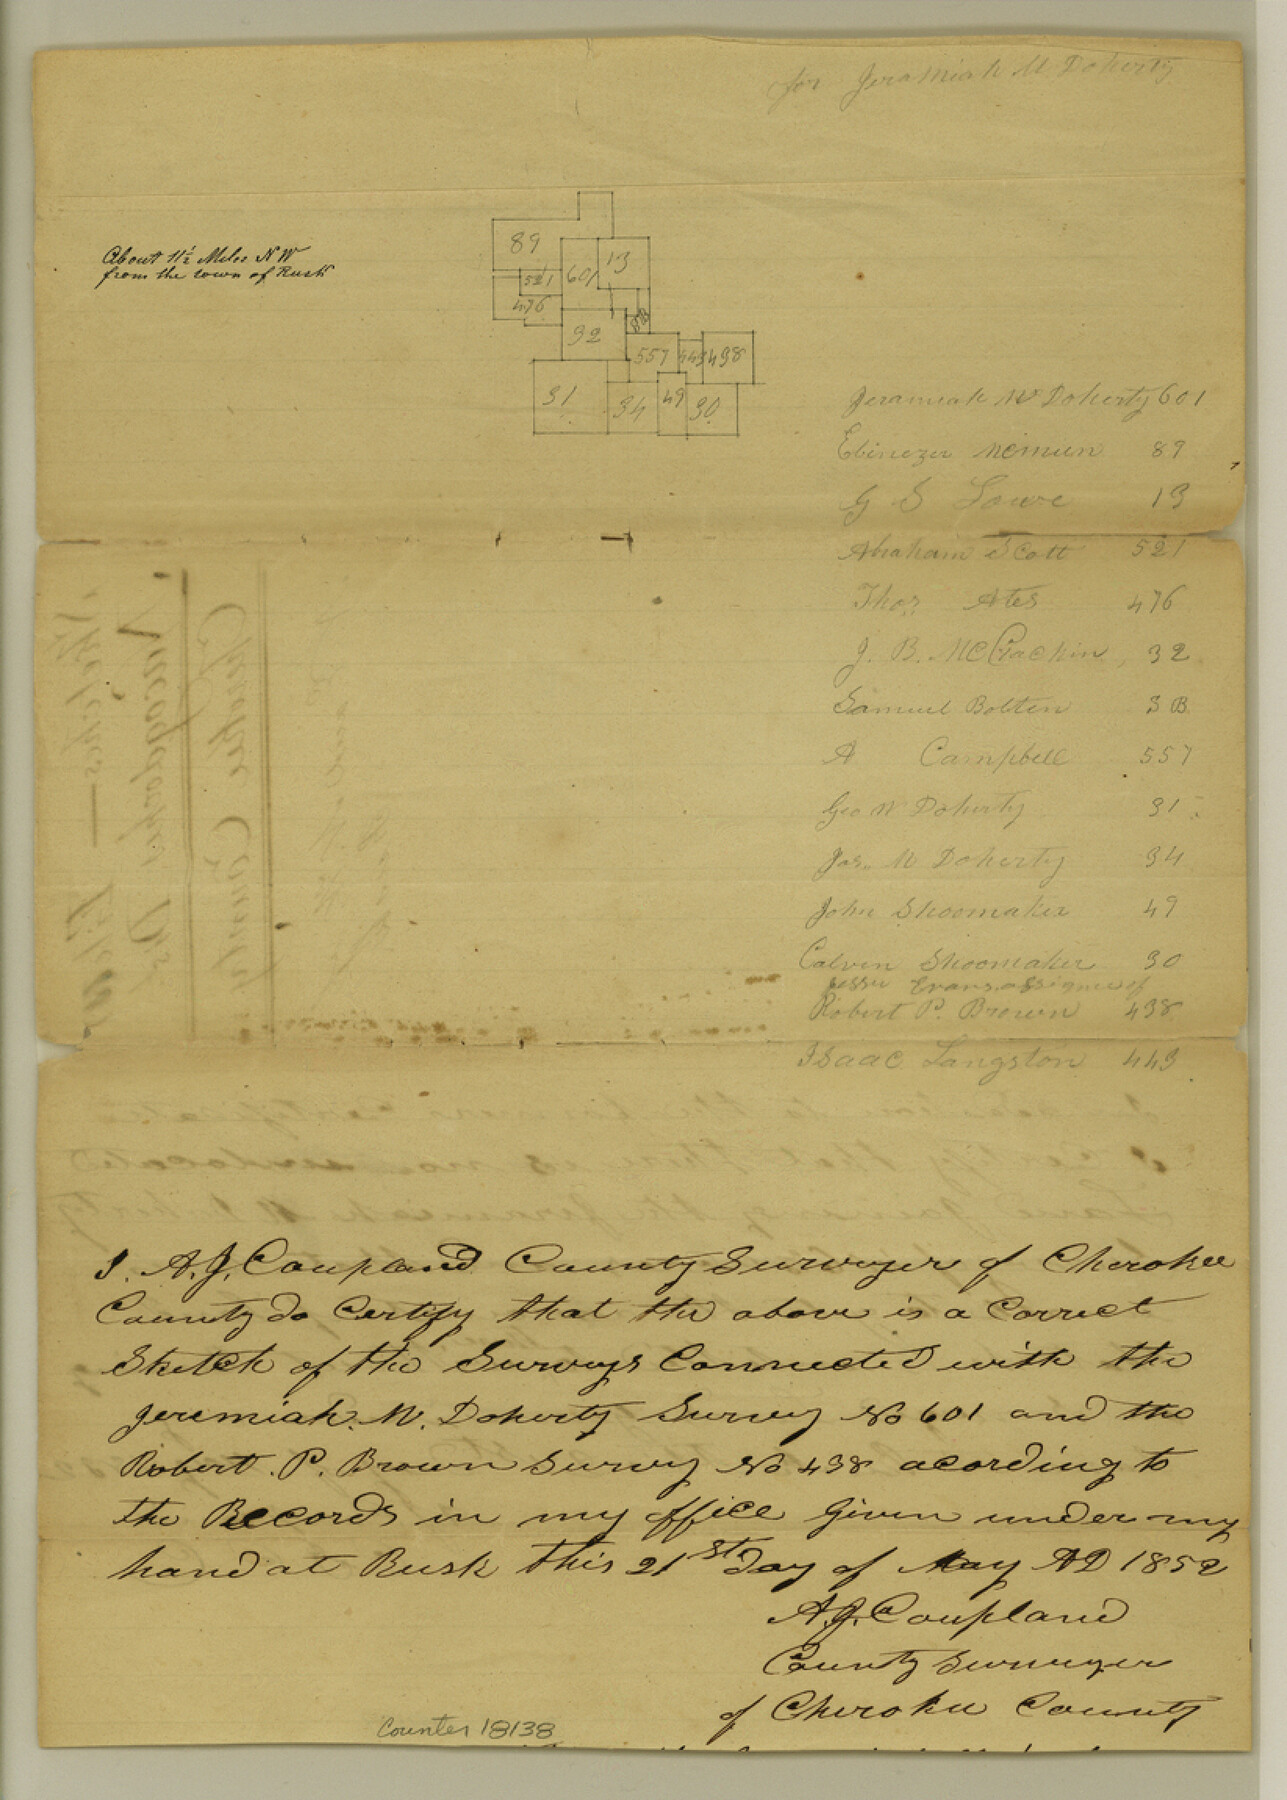 for Jeramiah M Doherty
About 11½ Miles NW
from the town of Rusk
89
13
601
521
476
32
3B
557
443
438
31
34
49
30
Jeramiah M Doherty 601
Ebinezer 89
G S Lowe 13
Abraham Scott 521
Thos Ates 476
J. B. McCrackin 32
Samuel Bolten 3 B
A Campbell 557
Geo W Doherty 31
Jas. M Doherty 34
John Shoomaker 49
Calven Shoomaker 30
Jesse Evans assignee of
Robert P. Brown 438
Isaac Langston 443
Cherokee County
Nacogdoches
I. A.J. Coupland County Surveyer of Cherokee
County do Certify that the above is a Correct
Sketch of the Surveys Connected with the
Jeremiah. M. Doherty Survey No 601 and the
Robert. P. Brown Survey No 438 acording to
the Records in my office Given under my
hand at Rusk this 21st day of May AD 1852
A.J. Coupland
County Surveyer
of Cherokee County
Counter 18138